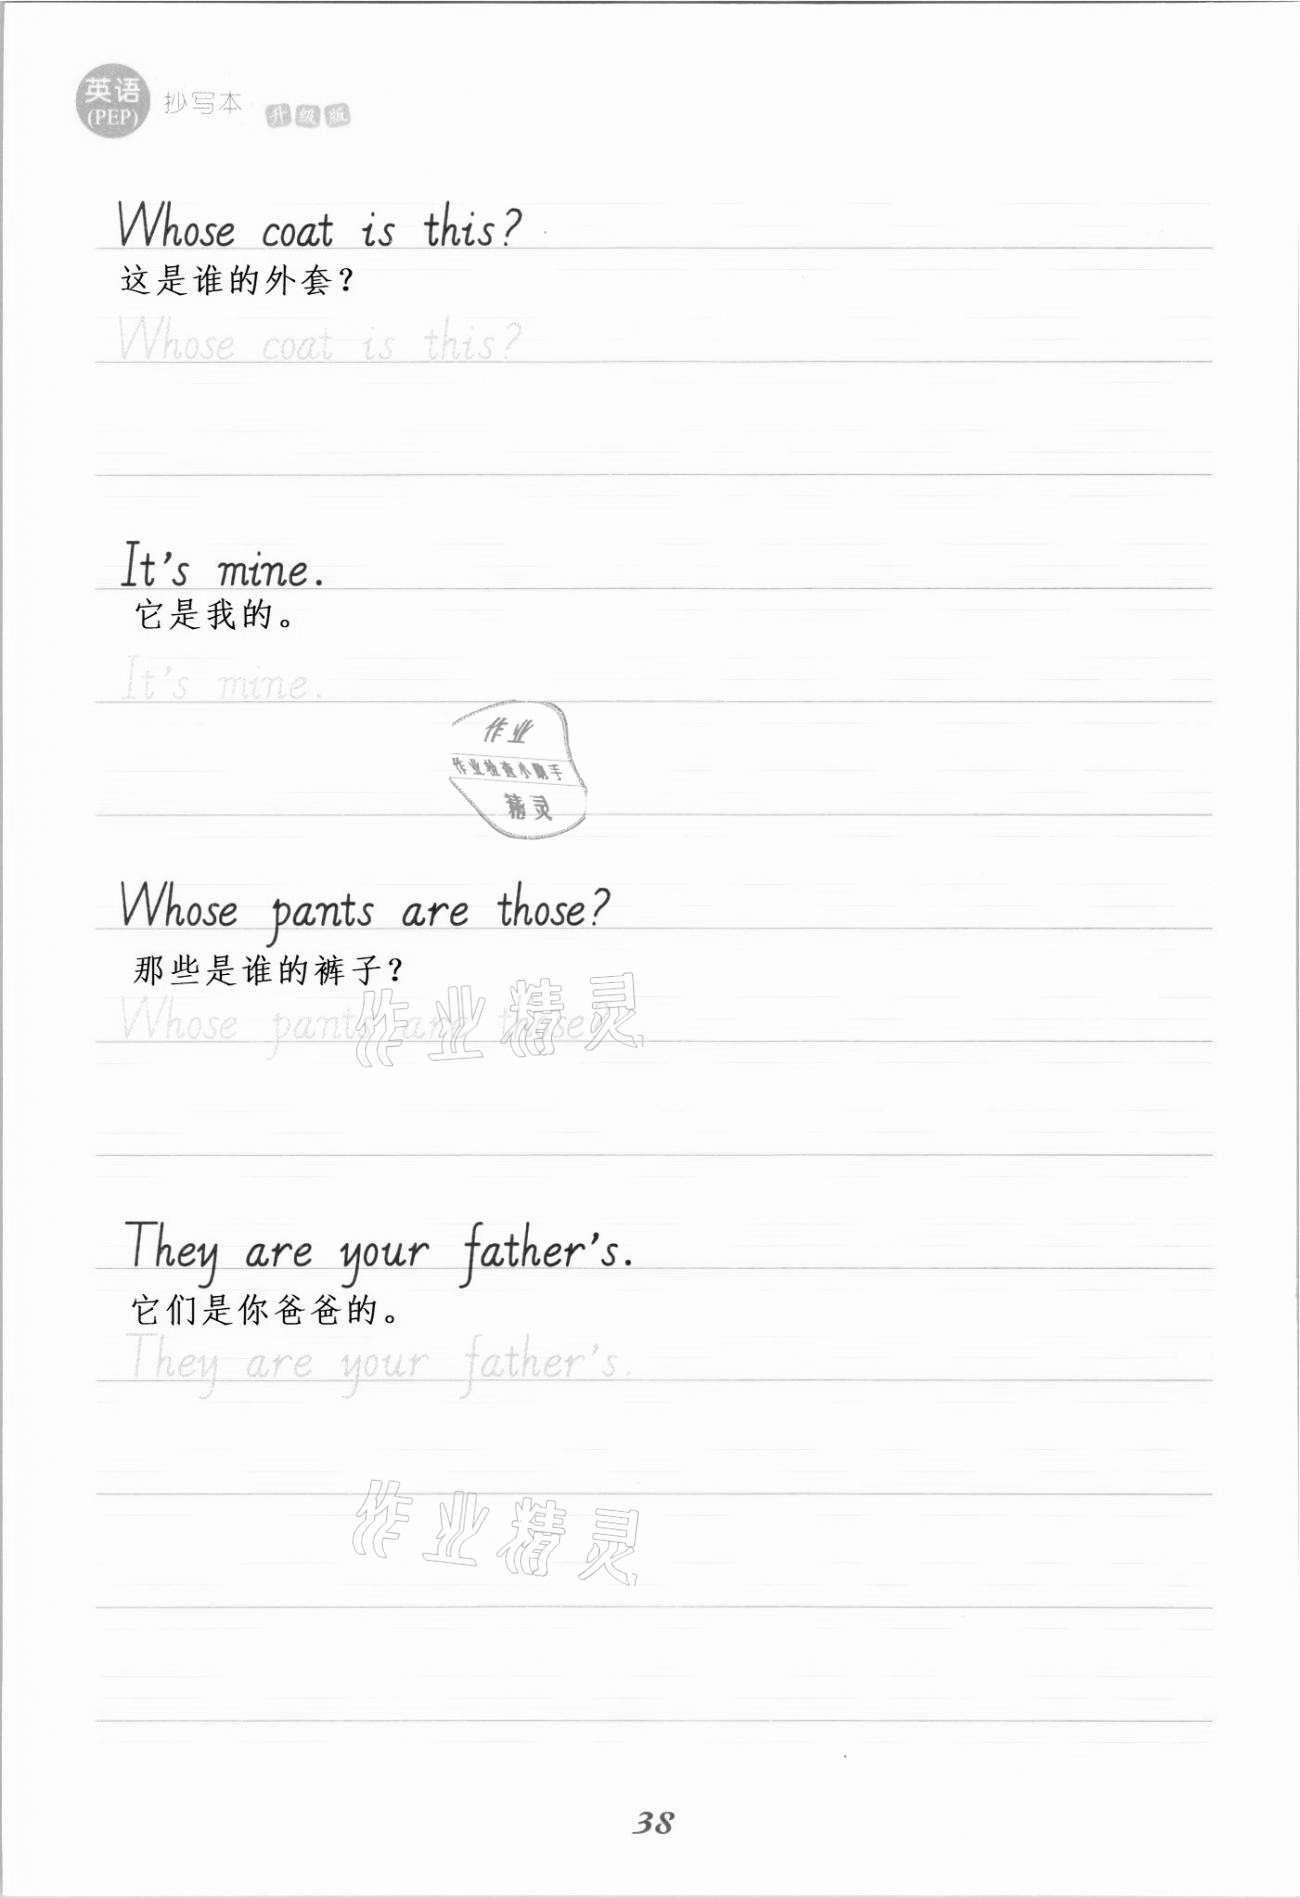 英语
(PEP)
抄写本 升级版
Whose coat is this?
这是谁的外套？
Whose coat is this?
It's mine.
它是我的。
It's mine.
作业
作业检查小助手
精灵
Whose pants are those?
那些是谁的裤子？
Whose pants are those?
作业精灵
They are your father's.
它们是你爸爸的。
They are your father's.
作业精灵
38